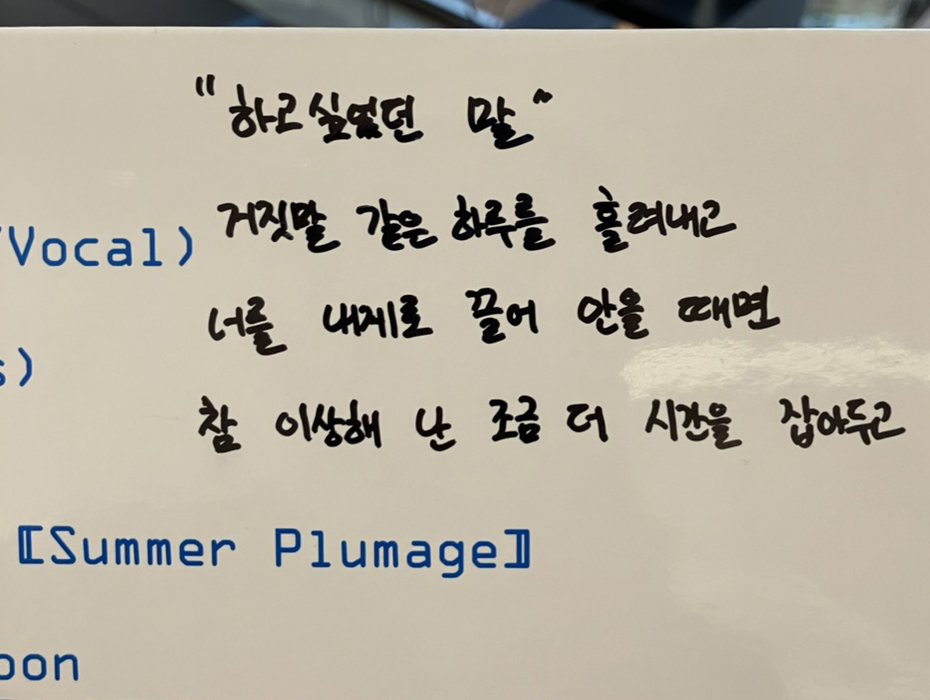 "하고싶었던 말"
거짓말 같은 하루를 흘려내고
/Vocal)
너를 내게로 끌어 안을 때면
s)
참 이상해 난 조금 더 시간을 잡아두고
〖Summer Plumage〗
oon